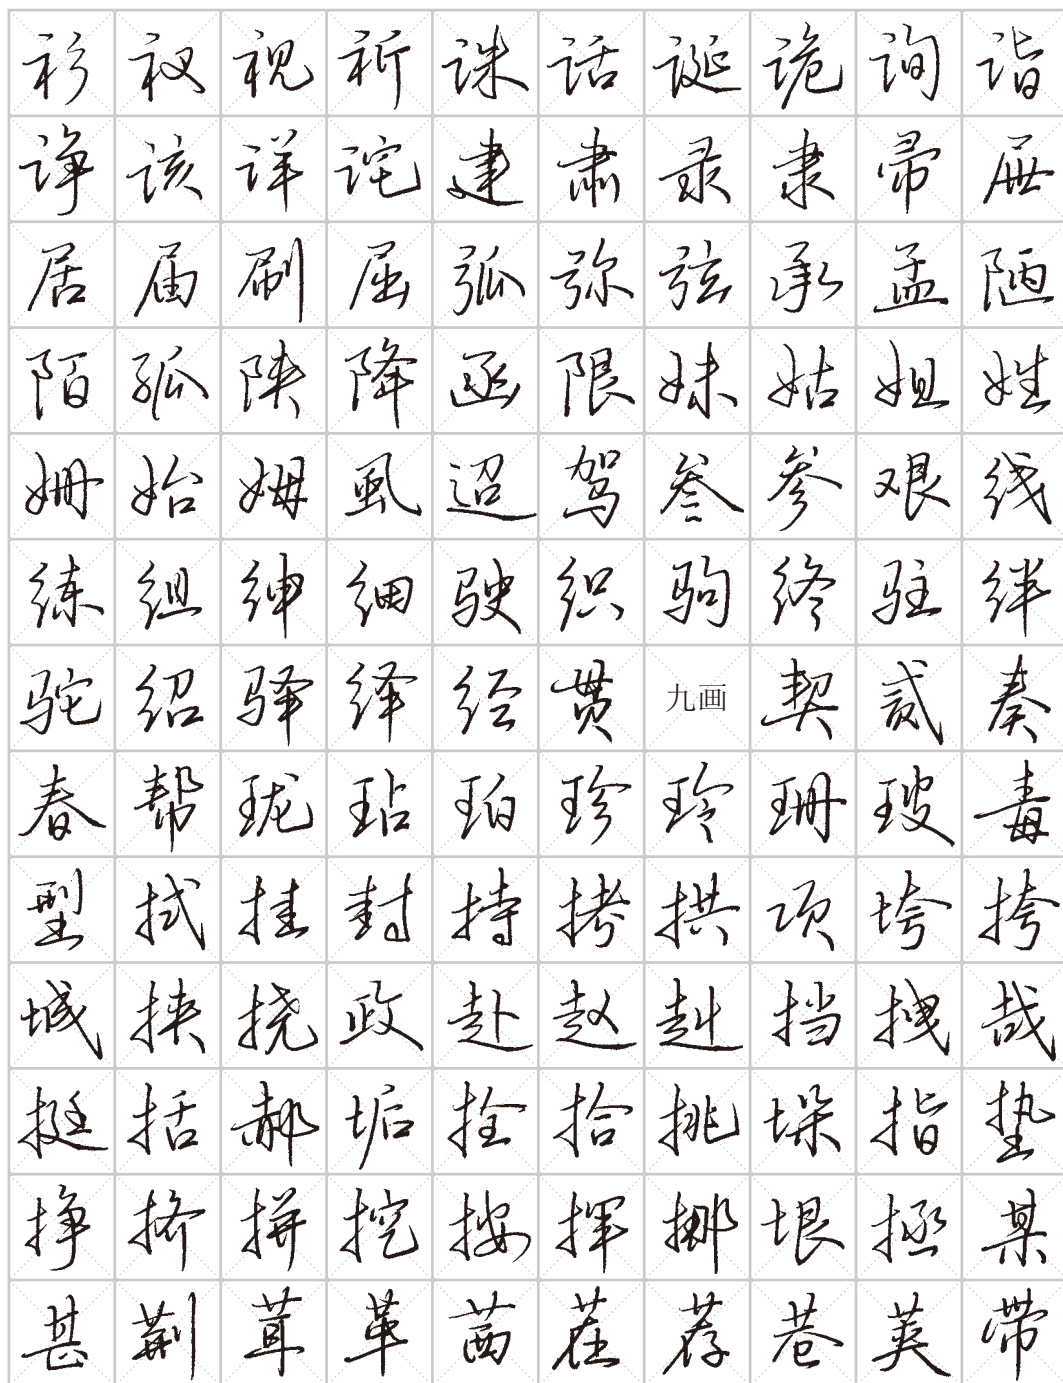 衫 衩 视 祈 诛 话 诞 诡 询 诣
诤 该 详 诧 建 肃 录 隶 帚 屉
居 届 刷 屈 弧 弥 弦 承 孟 陋
陌 孤 陕 降 函 限 妹 姑 姐 姓
姗 始 姆 虱 迢 驾 叁 参 艰 线
练 组 绅 细 驶 织 驹 终 驻 绊
驼 绍 驿 绎 经 贯 九画 契 贰 奏
春 帮 珑 玷 珀 珍 玲 珊 玻 毒
型 拭 挂 封 持 拷 拱 项 垮 挎
城 挟 挠 政 赴 赵 赳 挡 拽 哉
挺 括 郝 垢 拴 拾 挑 垛 指 垫
挣 挤 拼 挖 按 挥 挪 垠 拯 某
甚 荆 茸 革 茜 茬 荐 巷 荚 带